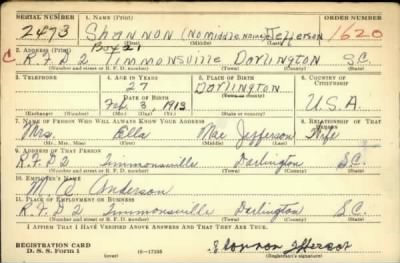 SERIAL NUMBER 1. NAME (Print) ORDER NUMBER
2473 SHANNON (No middle name) Jefferson 1620
(First) (Middle) (Last)
Box 21
2. ADDRESS (Print)
C R.F.D 2 Timmonsville Darlington S.C.
(Number and street or R. F. D. number) (Town) (County) (State)
3. TELEPHONE 4. AGE IN YEARS 5. PLACE OF BIRTH 6. COUNTRY OF CITIZENSHIP
27 Darlington
DATE OF BIRTH (Town or county)
Feb 3, 1913 U.S.A.
(Exchange) (Number) (Mo.) (Day) (Yr.) (State or country)
7. NAME OF PERSON WHO WILL ALWAYS KNOW YOUR ADDRESS 8. RELATIONSHIP OF THAT PERSON
Mrs. Ella Mae Jefferson Wife
(Mr., Mrs., Miss) (First) (Middle) (Last)
9. ADDRESS OF THAT PERSON
R.F.D 2 Timmonsville Darlington S.C.
(Number and street or R. F. D. number) (Town) (County) (State)
10. EMPLOYER'S NAME
Anderson
11. PLACE OF EMPLOYMENT OR BUSINESS
R.F.D 2 Timmonsville Darlington S.C.
(Number and street or R. F. D. number) (Town) (County) (State)
I AFFIRM THAT I HAVE VERIFIED ABOVE ANSWERS AND THAT THEY ARE TRUE.
REGISTRATION CARD
D. S. S. Form 1 (over) (Registrant's signature)